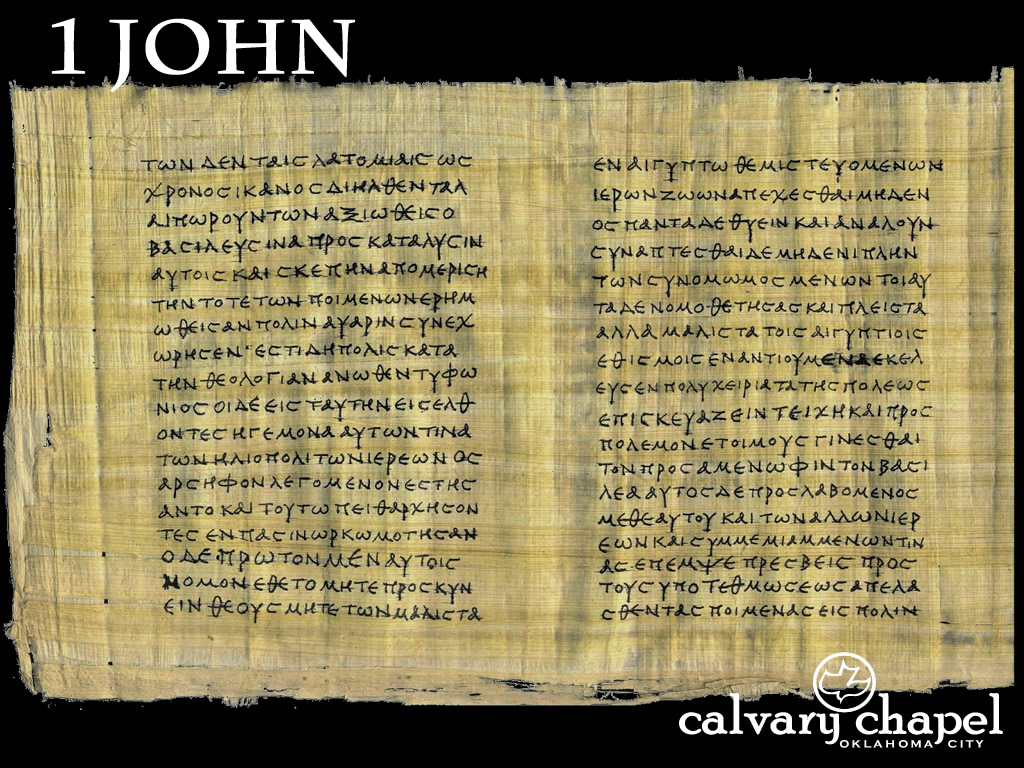 1 JOHN
ΤΩΝ ΔΕΝ ΤΑΙΣ ΛΑΤΟΜΙΑΙΣ ΩΣ
ΧΡΟΝΟΣ ΙΚΑΝΟΣ ΔΙΗΛΘΕΝ ΤΑΛ
ΑΙΠΩΡΟΥΝΤΩΝ ΑΞΙΩΘΕΙΣ Ο
ΒΑΣΙΛΕΥΣ ΙΝΑ ΠΡΟΣ ΚΑΤΑΛΥΣΙΝ
ΑΥΤΟΙΣ ΚΑΙ ΣΚΕΠΗΝ ΑΠΟΜΕΡΙΣΗ
ΤΗΝ ΤΟΤΕ ΤΩΝ ΠΟΙΜΕΝΩΝ ΕΡΗΜ
ΩΘΕΙΣΑΝ ΠΟΛΙΝ ΑΥΑΡΙΝ ΣΥΝΕΧ
ΩΡΗΣΕΝ· ΕΣΤΙ Δ Η ΠΟΛΙΣ ΚΑΤΑ
ΤΗΝ ΘΕΟΛΟΓΙΑΝ ΑΝΩΘΕΝ ΤΥΦΩ
ΝΙΟΣ ΟΙ ΔΕ ΕΙΣ ΤΑΥΤΗΝ ΕΙΣΕΛΘ
ΟΝΤΕΣ ΗΓΕΜΟΝΑ ΑΥΤΩΝ ΤΙΝΑ
ΤΩΝ ΗΛΙΟΠΟΛΙΤΩΝ ΙΕΡΕΩΝ ΟΣ
ΑΡΣΗΦΟΝ ΛΕΓΟΜΕΝΟΝ ΕΣΤΗΣ
ΑΝΤΟ ΚΑΙ ΤΟΥΤΩ ΠΕΙΘΑΡΧΗΣΟΝ
ΤΕΣ ΕΝ ΠΑΣΙΝ ΩΡΚΩΜΟΤΗΣΑΝ
Ο ΔΕ ΠΡΩΤΟΝ ΜΕΝ ΑΥΤΟΙΣ
ΝΟΜΟΝ ΕΘΕΤΟ ΜΗΤΕ ΠΡΟΣΚΥΝ
ΕΙΝ ΘΕΟΥΣ ΜΗΤΕ ΤΩΝ ΜΑΛΙΣΤΑ
ΕΝ ΑΙΓΥΠΤΩ ΘΕΜΙΣΤΕΥΟΜΕΝΩΝ
ΙΕΡΩΝ ΖΩΩΝ ΑΠΕΧΕΣΘΑΙ ΜΗΔΕΝ
ΟΣ ΠΑΝΤΑ ΔΕ ΘΥΕΙΝ ΚΑΙ ΑΝΑΛΟΥΝ
ΣΥΝΑΠΤΕΣΘΑΙ ΔΕ ΜΗΔΕΝΙ ΠΛΗΝ
ΤΩΝ ΣΥΝΟΜΩΜΟΣΜΕΝΩΝ ΤΟΙΑΥ
ΤΑ ΔΕ ΝΟΜΟΘΕΤΗΣΑΣ ΚΑΙ ΠΛΕΙΣΤΑ
ΑΛΛΑ ΜΑΛΙΣΤΑ ΤΟΙΣ ΑΙΓΥΠΤΙΟΙΣ
ΕΘΙΣΜΟΙΣ ΕΝΑΝΤΙΟΥΜΕΝΑ ΕΚΕΛ
ΕΥΣΕΝ ΠΟΛΥΧΕΙΡΙΑ ΤΑ ΤΗΣ ΠΟΛΕΩΣ
ΕΠΙΣΚΕΥΑΖΕΙΝ ΤΕΙΧΗ ΚΑΙ ΠΡΟΣ
ΠΟΛΕΜΟΝ ΕΤΟΙΜΟΥΣ ΓΙΝΕΣΘΑΙ
ΤΟΝ ΠΡΟΣ ΑΜΕΝΩΦΙΝ ΤΟΝ ΒΑΣΙ
ΛΕΑ ΑΥΤΟΣ ΔΕ ΠΡΟΣΛΑΒΟΜΕΝΟΣ
ΜΕΘ ΕΑΥΤΟΥ ΚΑΙ ΤΩΝ ΑΛΛΩΝ ΙΕΡ
ΕΩΝ ΚΑΙ ΣΥΜΜΕΜΙΑΜΜΕΝΩΝ ΤΙΝ
ΑΣ ΕΠΕΜΨΕ ΠΡΕΣΒΕΙΣ ΠΡΟΣ
ΤΟΥΣ ΥΠΟ ΤΕΘΜΩΣΕΩΣ ΑΠΕΛΑ
ΣΘΕΝΤΑΣ ΠΟΙΜΕΝΑΣ ΕΙΣ ΠΟΛΙΝ
calvary chapel
OKLAHOMA CITY